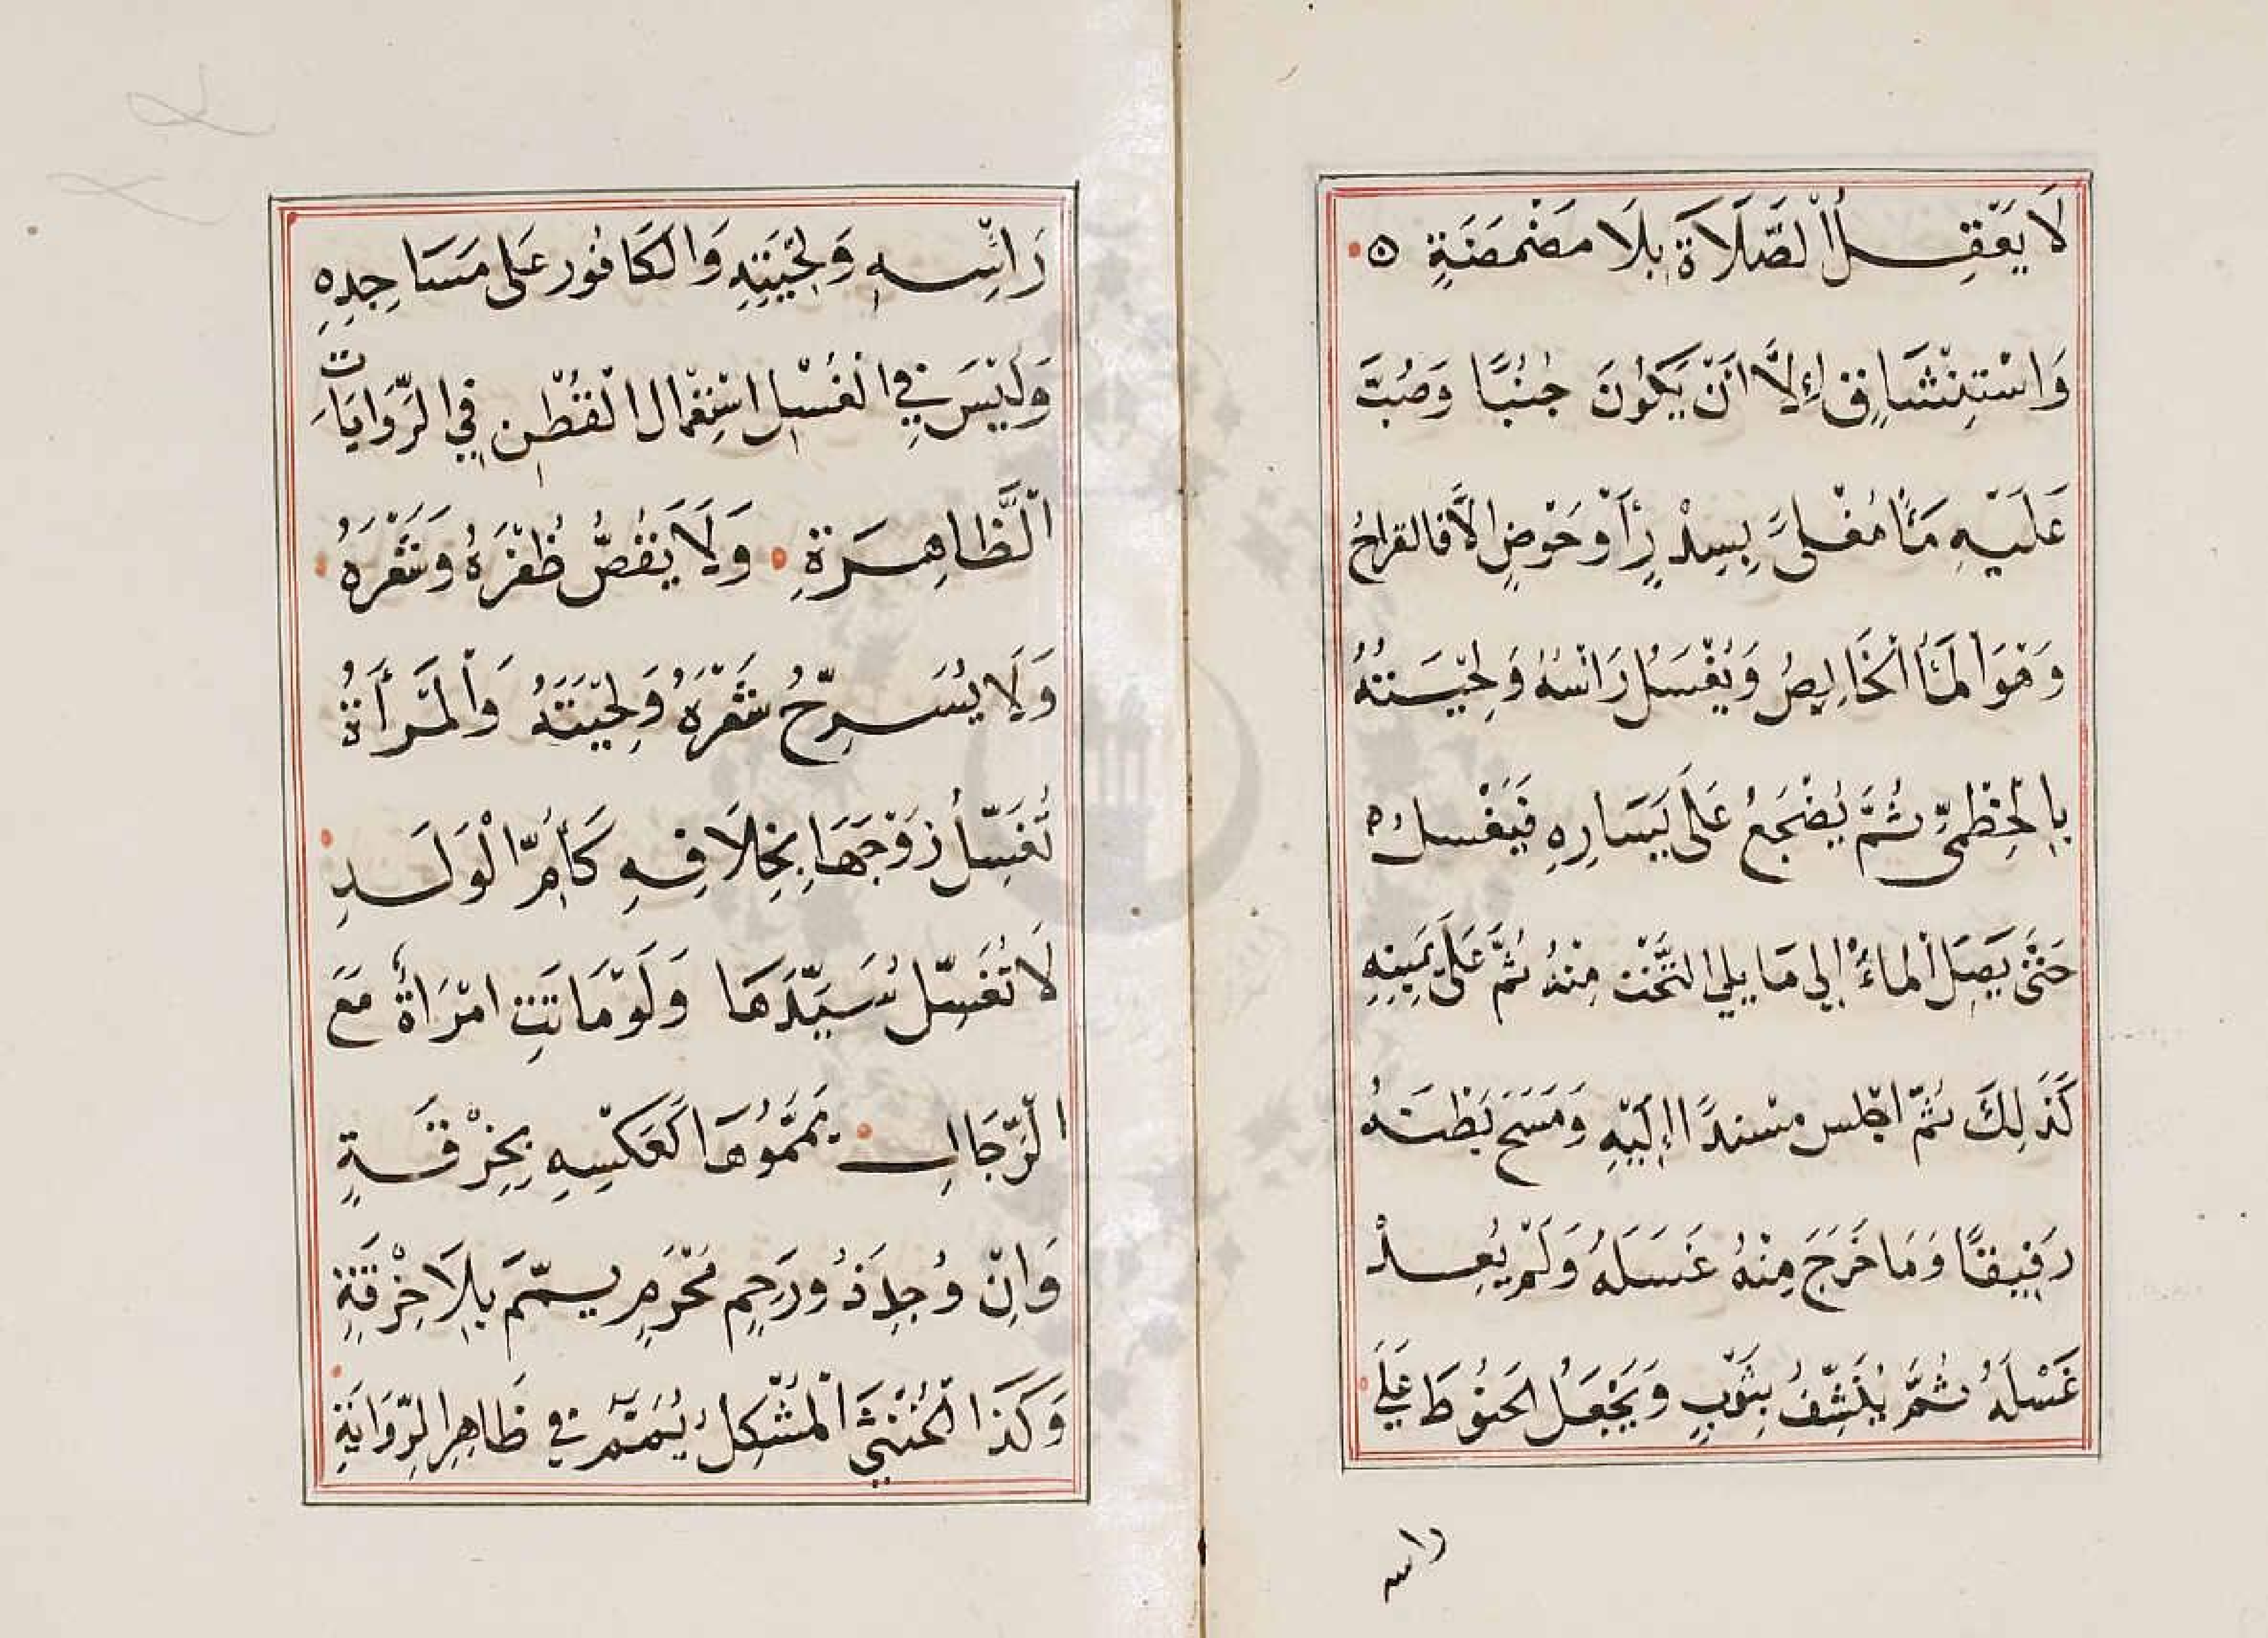 لَا يَعْقِلُ الصَّلَاةَ بِلَا مَضْمَضَةٍ
وَاسْتِنْشَاقٍ إِلَّا أَنْ يَكُونَ جُنُبًا وَصُبَّ
عَلَيْهِ مَاءٌ مُغْلَىً بِسِدْرٍ أَوْ حَوْضٍ الَّا فالقراحُ
وَهُوَ الْمَاءُ الْخَالِصُ وَيُغْسَلُ رَاْسُهُ وَلِحْيَتُهُ
بِالْخِطْمِيِّ ثُمَّ يُضْجَعُ عَلَى يَسَارِهِ فَيُغْسلُ
حَتَّى يَصِلَ الْماءُ إِلى مَا يلي التَّخْت مِنْهُ ثُمَّ عَلَى يَمِينِهِ
كَذَلِكَ ثُمَّ اجْلس مسْندًا إِلَيْهِ وَمَسَحَ بَطْنَهُ
رَفِيقًا وَمَا خَرَجَ مِنْهُ غَسَلَهُ وَلَمْ يُعِدْ
غَسْلَهُ ثُمَّ يُنَشِّفُ بِثَوْبٍ وَيَجْعَلُ الحَنُوطَ عَلَى
راسه
رَاْسِهِ وَلِحْيَتِهِ وَالكَافُور عَلى مَسَاجِدِهِ
وَلَيْسَ فِي الْغُسْلِ اسْتِعْمَال الْقُطْنِ فِي الرِّوَايَات
الظَّاهِرَةِ وَلَا يَقُصُّ ظُفْرَهُ وَشَعْرَهُ
وَلَا يُسَرِّحُ شَعْرَهُ وَلِحْيَتَهُ وَالْمَرأَةُ
تُغَسِّلُ زَوْجَهَا بِخِلَافِهِ كَأُمِّ الْوَلَدِ
لَا تُغَسِّلُ سَيِّدَهَا وَلَوْ مَاتَتِ امْرَاةٌ مَعَ
الرِّجَالِ يَمَّمُوهَا كَعَكْسِهِ بِخِرْقَةٍ
وَاِنْ وُجِدَ ذُو رَحِمٍ مَحْرَمٍ يممّم بِلَا خِرْقَةِ
وَكَذَا الْخُنْثَى الْمُشْكِلُ يُمَّمُ في ظَاهِرِ الرِّوَايَةِ